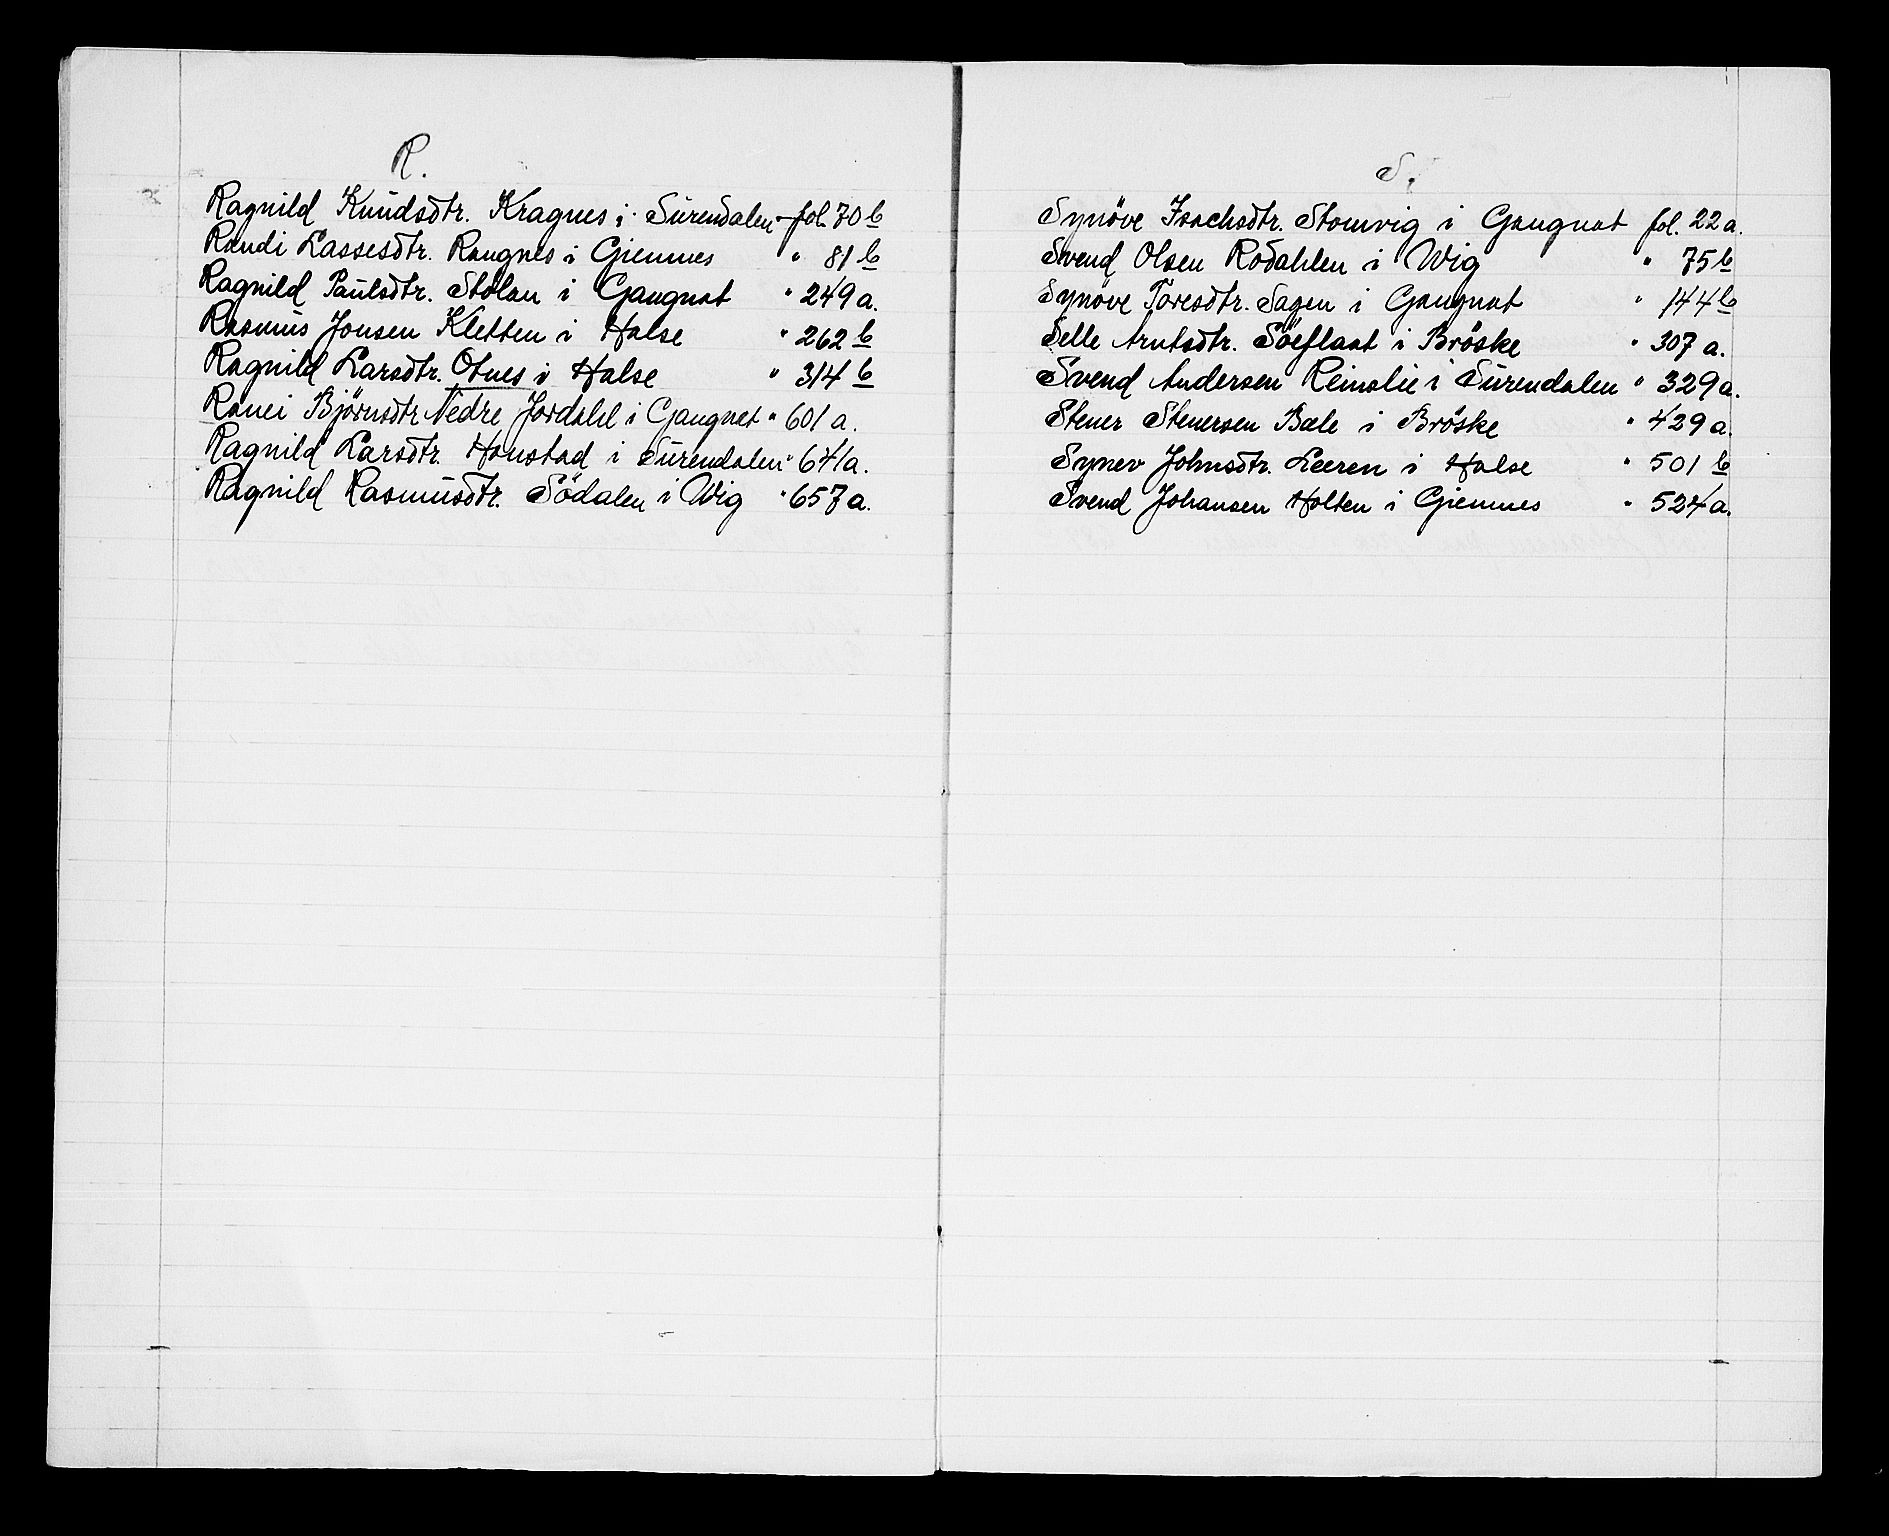 R.
Ragnild Knudsdtr. Kragnes i Surendalen - fol. 70 b
Randi Lassesdtr. Raugnes i Giemnes " 81 b
Ragnild Paulsdtr. Stølan i Gaugnat " 249 a.
Rasmus Jonsen Kletten i Halse " 262 b
Ragnild Larsdtr. Otnes i Halse " 314 b
Ranei Björnsdtr Nedre Jordahl i Gaugnat " 601 a.
Ragnild Larsdtr. Honstad i Surendalen " 641 a.
Ragnild Rasmusdtr. Södalen i Wig " 657 a.
S.
Synöve Isachsdtr. Stomvig i Gaugnat fol. 22 a.
Svend Olsen Rødahlen i Wig " 75 b
Synöve Toresdtr. Sagen i Gaugnat " 144 b
Selle Arntsdtr. Söeflaat i Bröske " 307 a.
Svend Andersen Reinslie i Surendalen " 329 a.
Stener Stenersen Bæle i Bröske " 429 a.
Synev Johnsdtr. Leeren i Halse " 501 b
Svend Johansen Holten i Giemnes " 524 a.